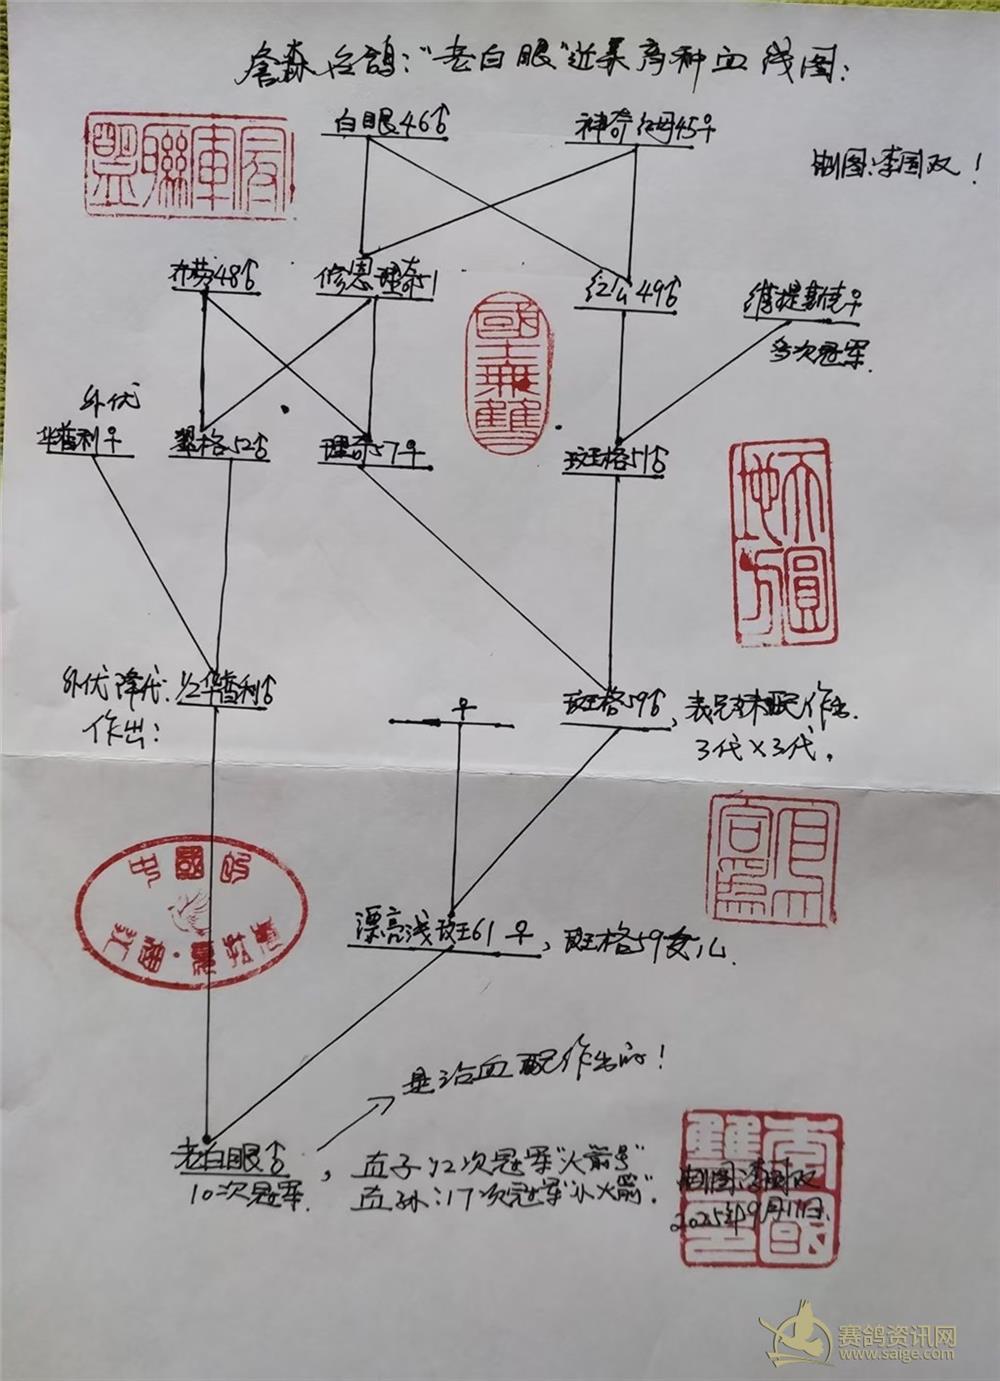 詹森名鸽:“老白眼”近亲育种血线图:
白眼46♂
神奇红母45♀
制图:李国双!
盟聯軍
布劳48♂
修恩理奇51
红公49♂
維提斯主♀
多次冠军.
國士無雙
外优
华普利♀
翠格52♂
理奇57♀
斑格51♂
天圓地方
外优降代:
1/2华普利♂
作出:
♀
斑格59♂,
表兄妹配作出.
3代×3代.
中國
漂亮浅斑61♀,斑格59女儿.
是沾血配作出的!
老白眼♂
10次冠军.
,直子12次冠军“火箭号”
直孙:17次冠军“小火箭”.
制图:李国双
2025年9月11日.
赛鸽资讯网
www.saige.com